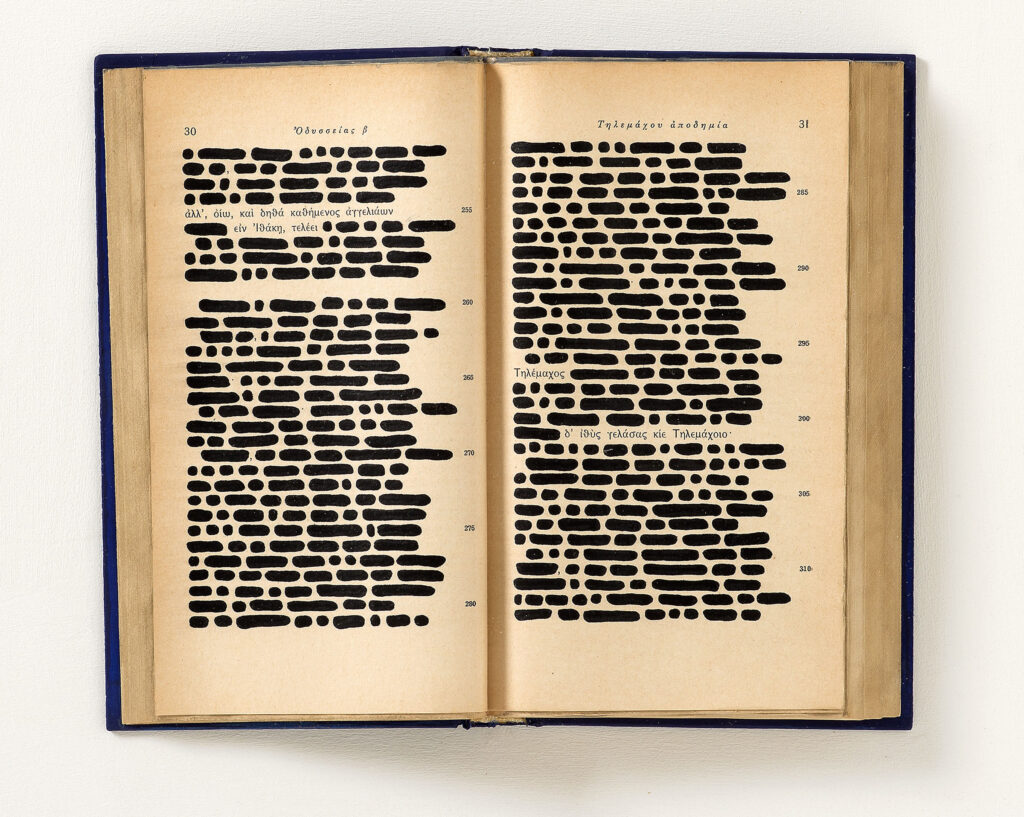 30 Ὀδυσσείας β
ἀλλ', ὀίω, καὶ δηθὰ καθήμενος ἀγγελιάων 255
εἰν Ἰθάκῃ, τελέει
260
265
270
275
280
Τηλεμάχου ἀποδημία 31
285
290
295
Τηλέμαχος
300
δ' ἰθὺς γελάσας κίε Τηλεμάχοιο·
305
310